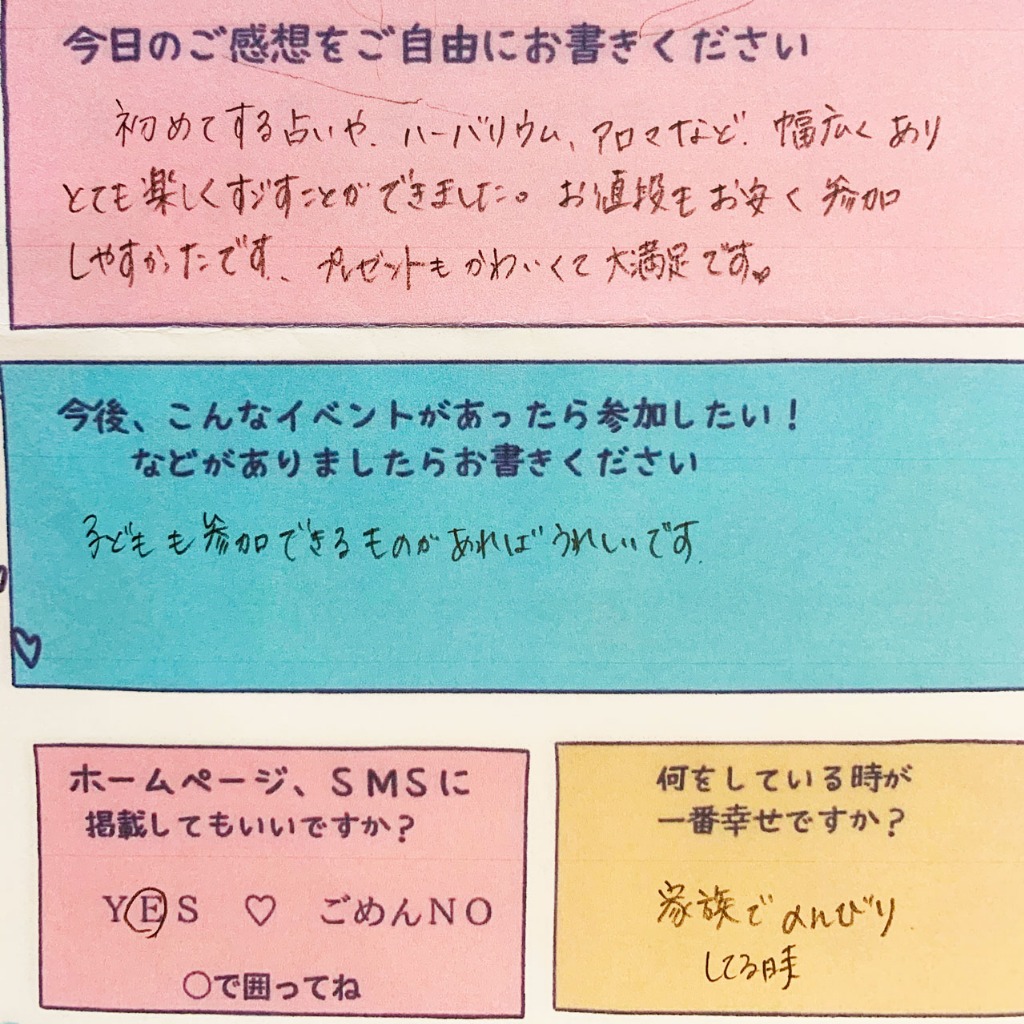 今日のご感想をご自由にお書きください
初めてする占いや、ハーバリウム、アロマなど、幅広くあり
とても楽しくすごすことができました。お値段もお安く参加
しやすかったです、プレゼントもかわいくて大満足です♥
今後、こんなイベントがあったら参加したい！
などがありましたらお書きください
子どもも参加できるものがあればうれしいです
ホームページ、SMSに
掲載してもいいですか？
YES ♡ ごめんNO
○で囲ってね
何をしている時が
一番幸せですか？
家族でのんびり
してる時